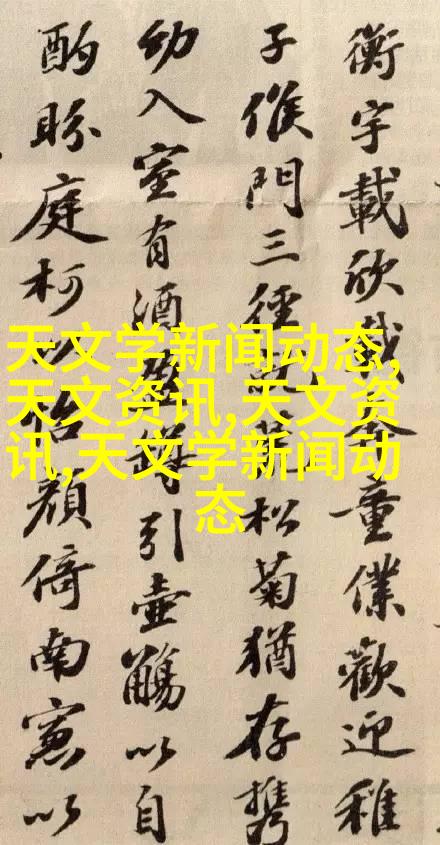 衡宇載欣載奔童僕歡迎稚
子候門三徑就荒松菊猶存携
幼入室有酒盈罇引壺觴以自
酌眄庭柯以怡顔倚南窓以
天文学新闻动态,
天文资讯,天文资
讯,天文学新闻动
态